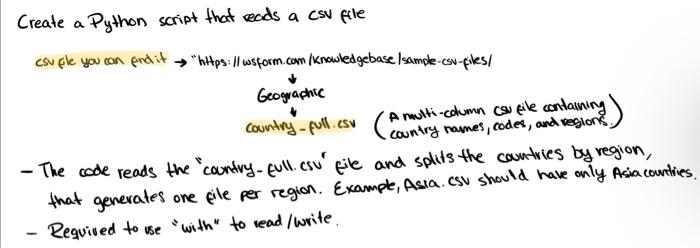 Create a Python script that reads a csv file
csv file you can find it → "https://wsform.com/knowledgebase/sample-csv-files/
↓
Geographic
↓
country_full.csv (A multi-column csv file containing
country names, codes, and regions.)
- The code reads the "country-full.csv" file and splits the countries by region,
that generates one file per region. Example, Asia.csv should have only Asia countries.
- Required to use "with" to read/write.